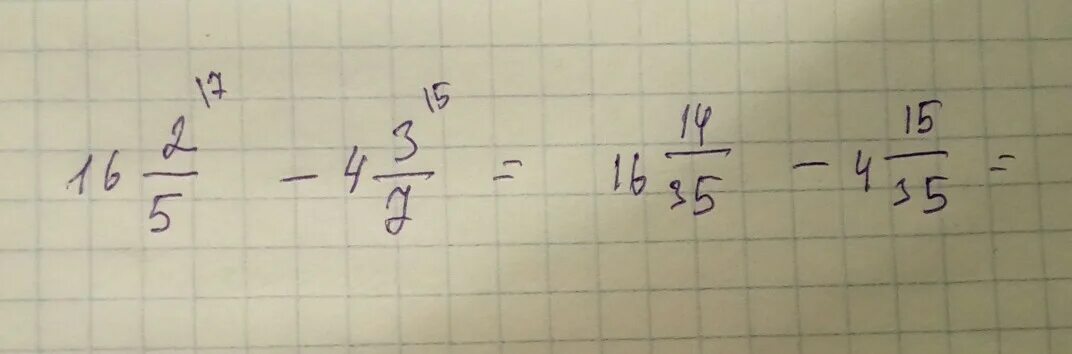 16 2/5 \17 - 4 3/7 \15 = 16 14/35 - 4 15/35 =